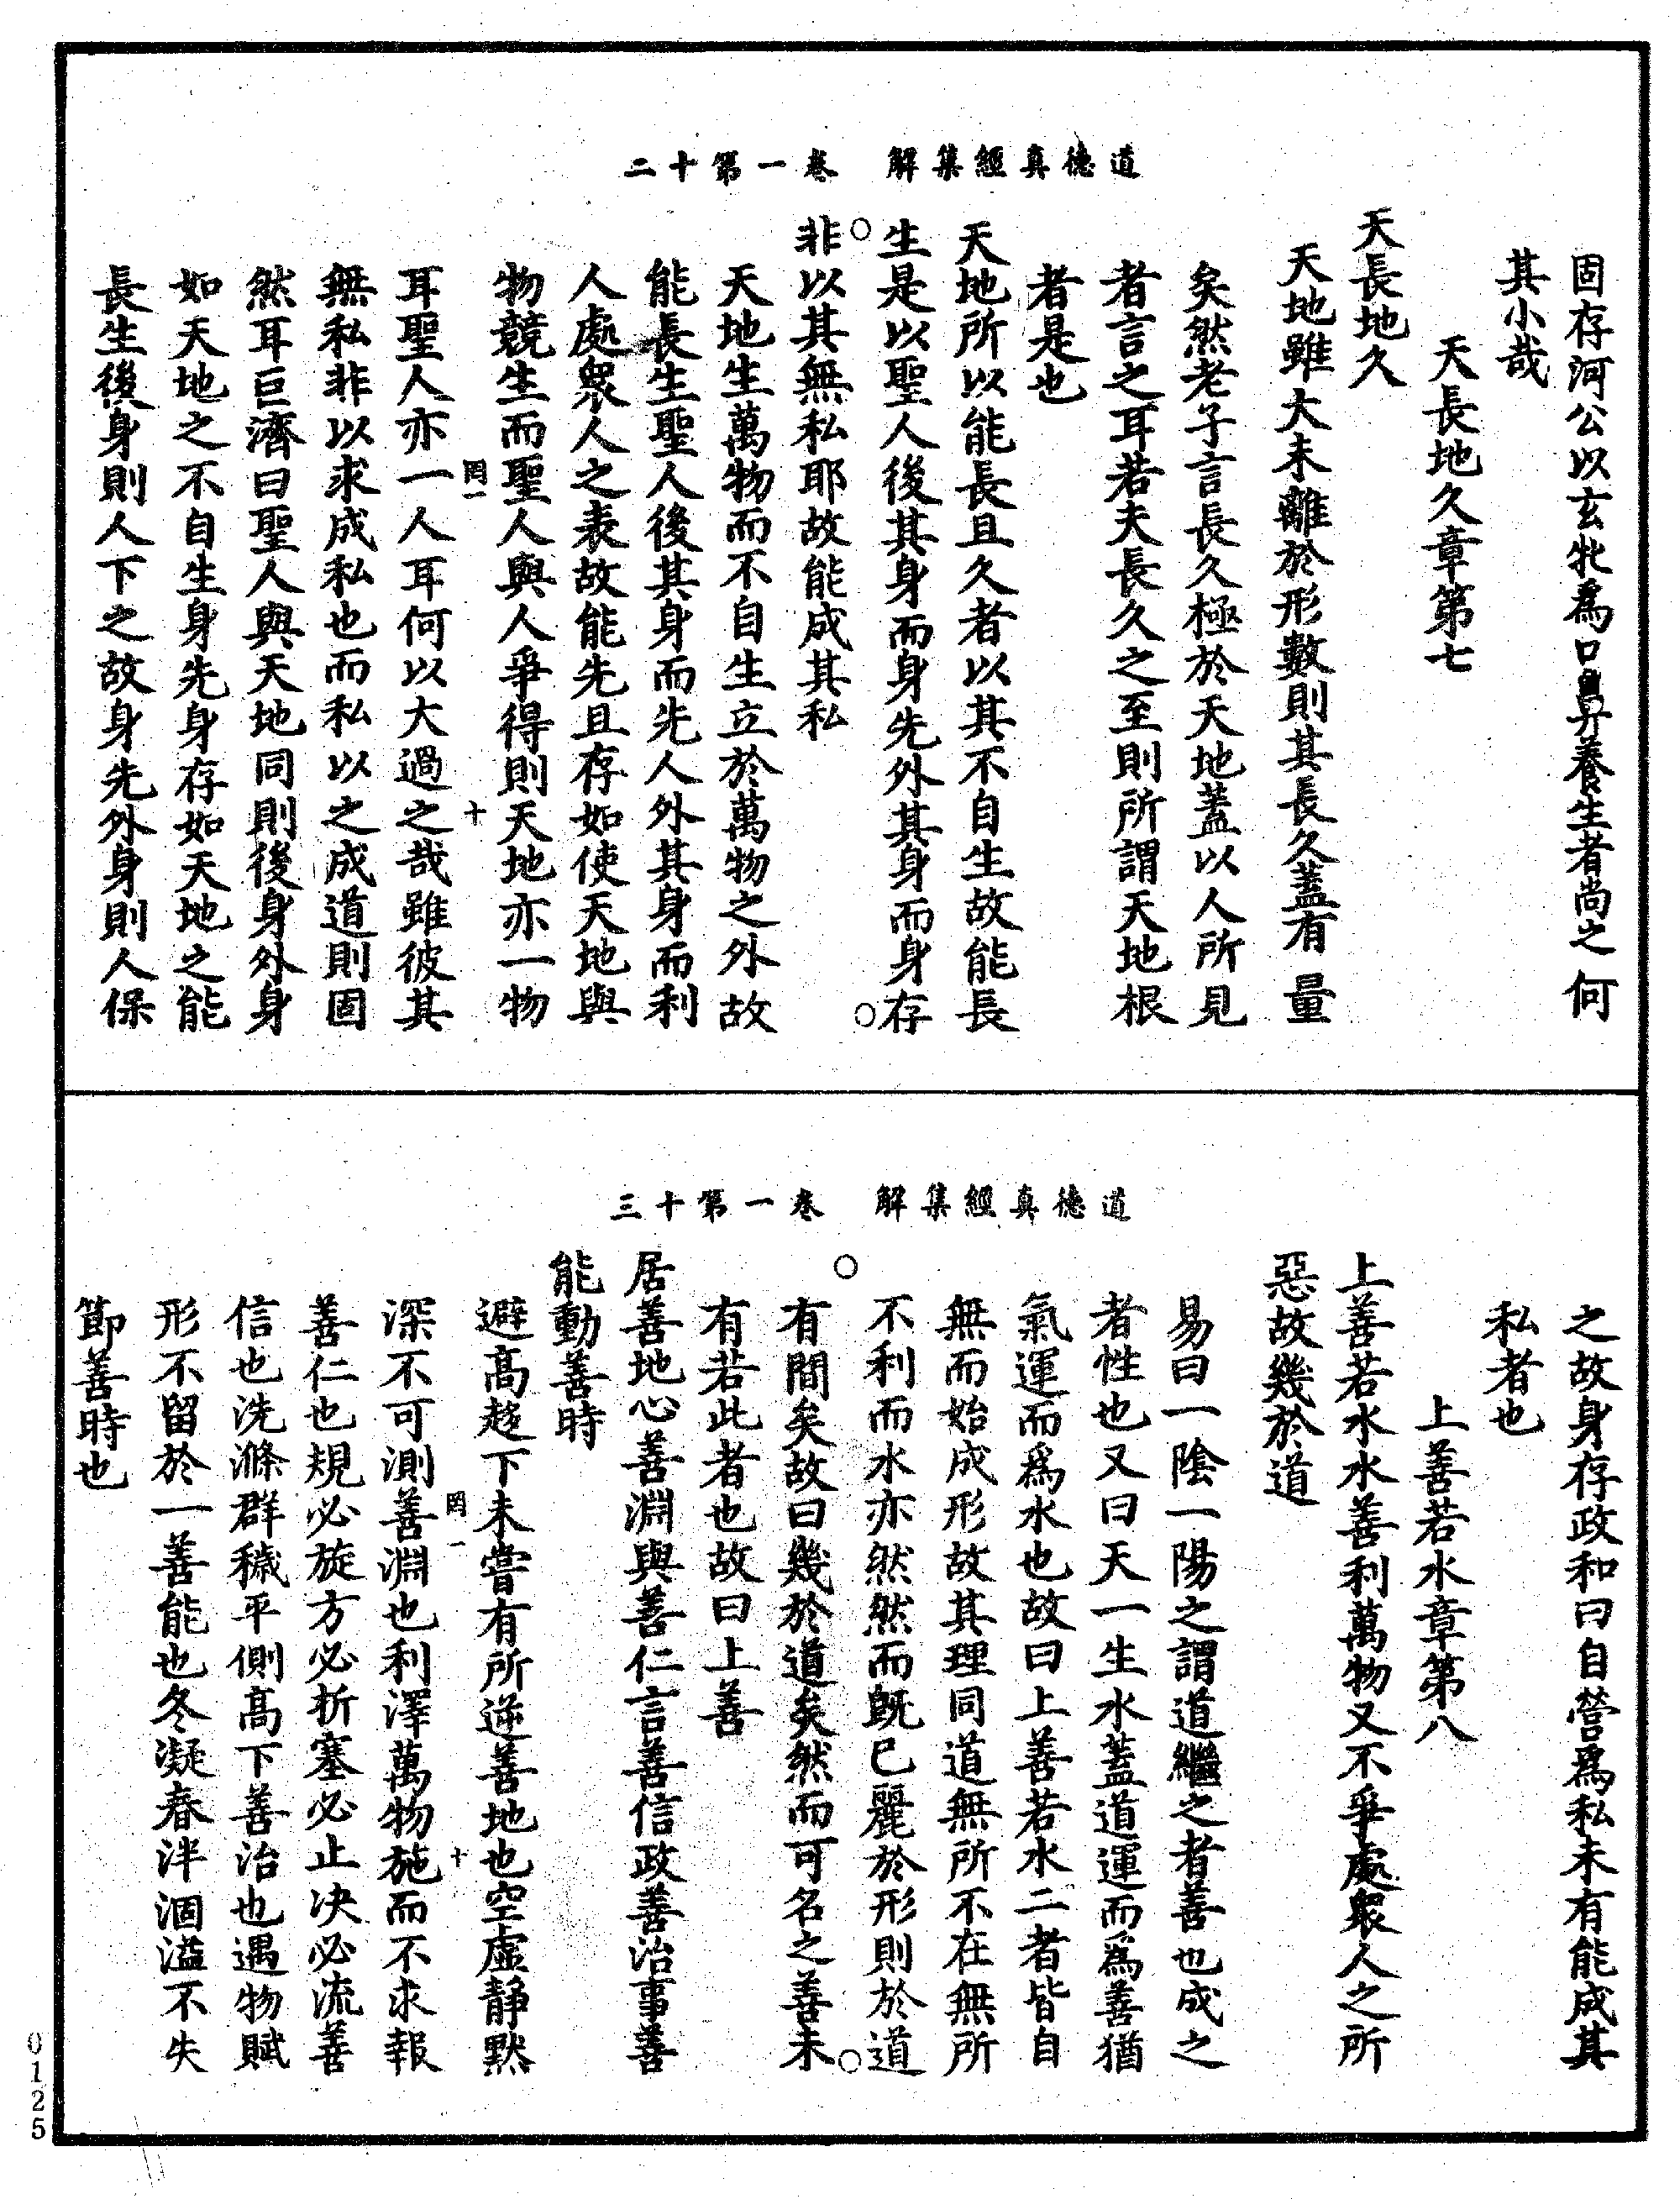 道德真經集解　卷一第十二
固存河公以玄牝爲口鼻养養生者尚之何
其小哉
天長地久章第七
天長地久
天地雖大未離於形數則其長久蓋有量
矣然老子言長久極於天地蓋以人所見
者言之耳若夫長久之至則所謂天地根
者是也
天地所以能長且久者以其不自生故能長
生是以聖人後其身而身先外其身而身存
非以其無私耶故能成其私
天地生萬物而不自生立於萬物之外故
能長生聖人後其身而先人外其身而利
人處衆人之表故能先且存如使天地與
物競生而聖人與人爭得則天地亦一物
罔一　十
耳聖人亦一人耳何以大過之哉雖彼其
無私非以求成私也而私以之成道則固
然耳巨濟曰聖人與天地同則後身外身
如天地之不自生身先身存如天地之能
長生後身則人下之故身先外身則人保
道德真經集解　卷一第十三
之故身存政和曰自營爲私未有能成其
私者也
上善若水章第八
上善若水水善利萬物又不爭處衆人之所
惡故幾於道
易曰一陰一陽之謂道繼之者善也成之
者性也又曰天一生水蓋道運而爲善猶
氣運而爲水也故曰上善若水二者皆自
無而始成形故其理同道無所不在無所
不利而水亦然然而既已麗於形則於道
有間矣故曰幾於道矣然而可名之善未
有若此者也故曰上善
居善地心善淵與善仁言善信政善治事善
能動善時
避高趍下未嘗有所逆善地也空虛靜黙
罔一　十
深不可測善淵也利澤萬物施而不求報
善仁也規必旋方必折塞必止决必流善
信也洗滌群穢平側高下善治也遇物賦
形不留於一善能也冬凝春泮涸溢不失
節善時也
0125